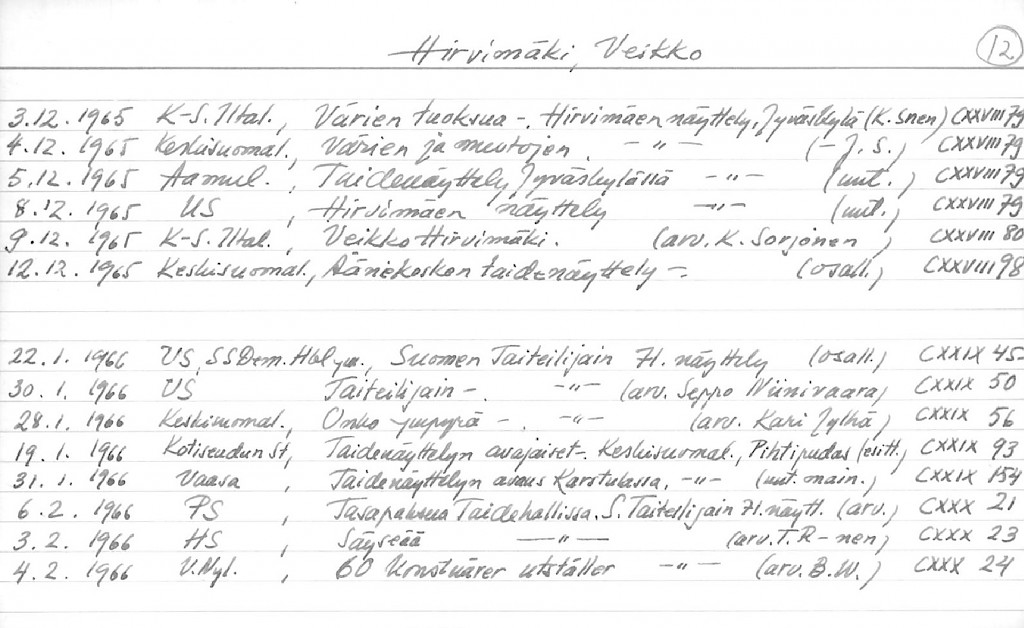 Hirvimäki, Veikko 12
3.12.1965 K-S. Iltal., Värien tuoksua -. Hirvimäen näyttely, Jyväskylä (K. Snen) CXXVIII 79
4.12.1965 Keskisuomal., Värien ja muotojen. -"- (-J.S.) CXXVIII 79
5.12.1965 Aamul., Taidenäyttely Jyväskylässä -"- (uut.) CXXVIII 79
8.12.1965 US, Hirvimäen näyttely -"- (uut.) CXXVIII 79
9.12.1965 K-S. Iltal., Veikko Hirvimäki. (arv. K. Sorjonen) CXXVIII 80
12.12.1965 Keskisuomal., Äänekosken taidenäyttely -. (osall.) CXXVIII 98
22.1.1966 US, SSDem. Hbl ym., Suomen Taiteilijain 71. näyttely (osall.) CXXIX 45
30.1.1966 US Taiteilijain -. -"- (arv. Seppo Niinivaara) CXXIX 50
28.1.1966 Keskisuomal., Onko -. -"- (arv. Kari Jylhä) CXXIX 56
19.1.1966 Kotiseudun St, Taidenäyttelyn avajaiset -. Keskisuomal., Pihtipudas (esitt.) CXXIX 93
31.1.1966 Vaasa, Taidenäyttelyn avaus Karstulassa, -"- (uut. main.) CXXIX 154
6.2.1966 PS, Tasapaksua Taidehallissa. S. Taiteilijain 71. näytt. (arv.) CXXX 21
3.2.1966 HS, Säyseää -"- (arv. T.R-nen) CXXX 23
4.2.1966 V.Nyl., 60 konstnärer utställer -"- (arv. B.W.) CXXX 24